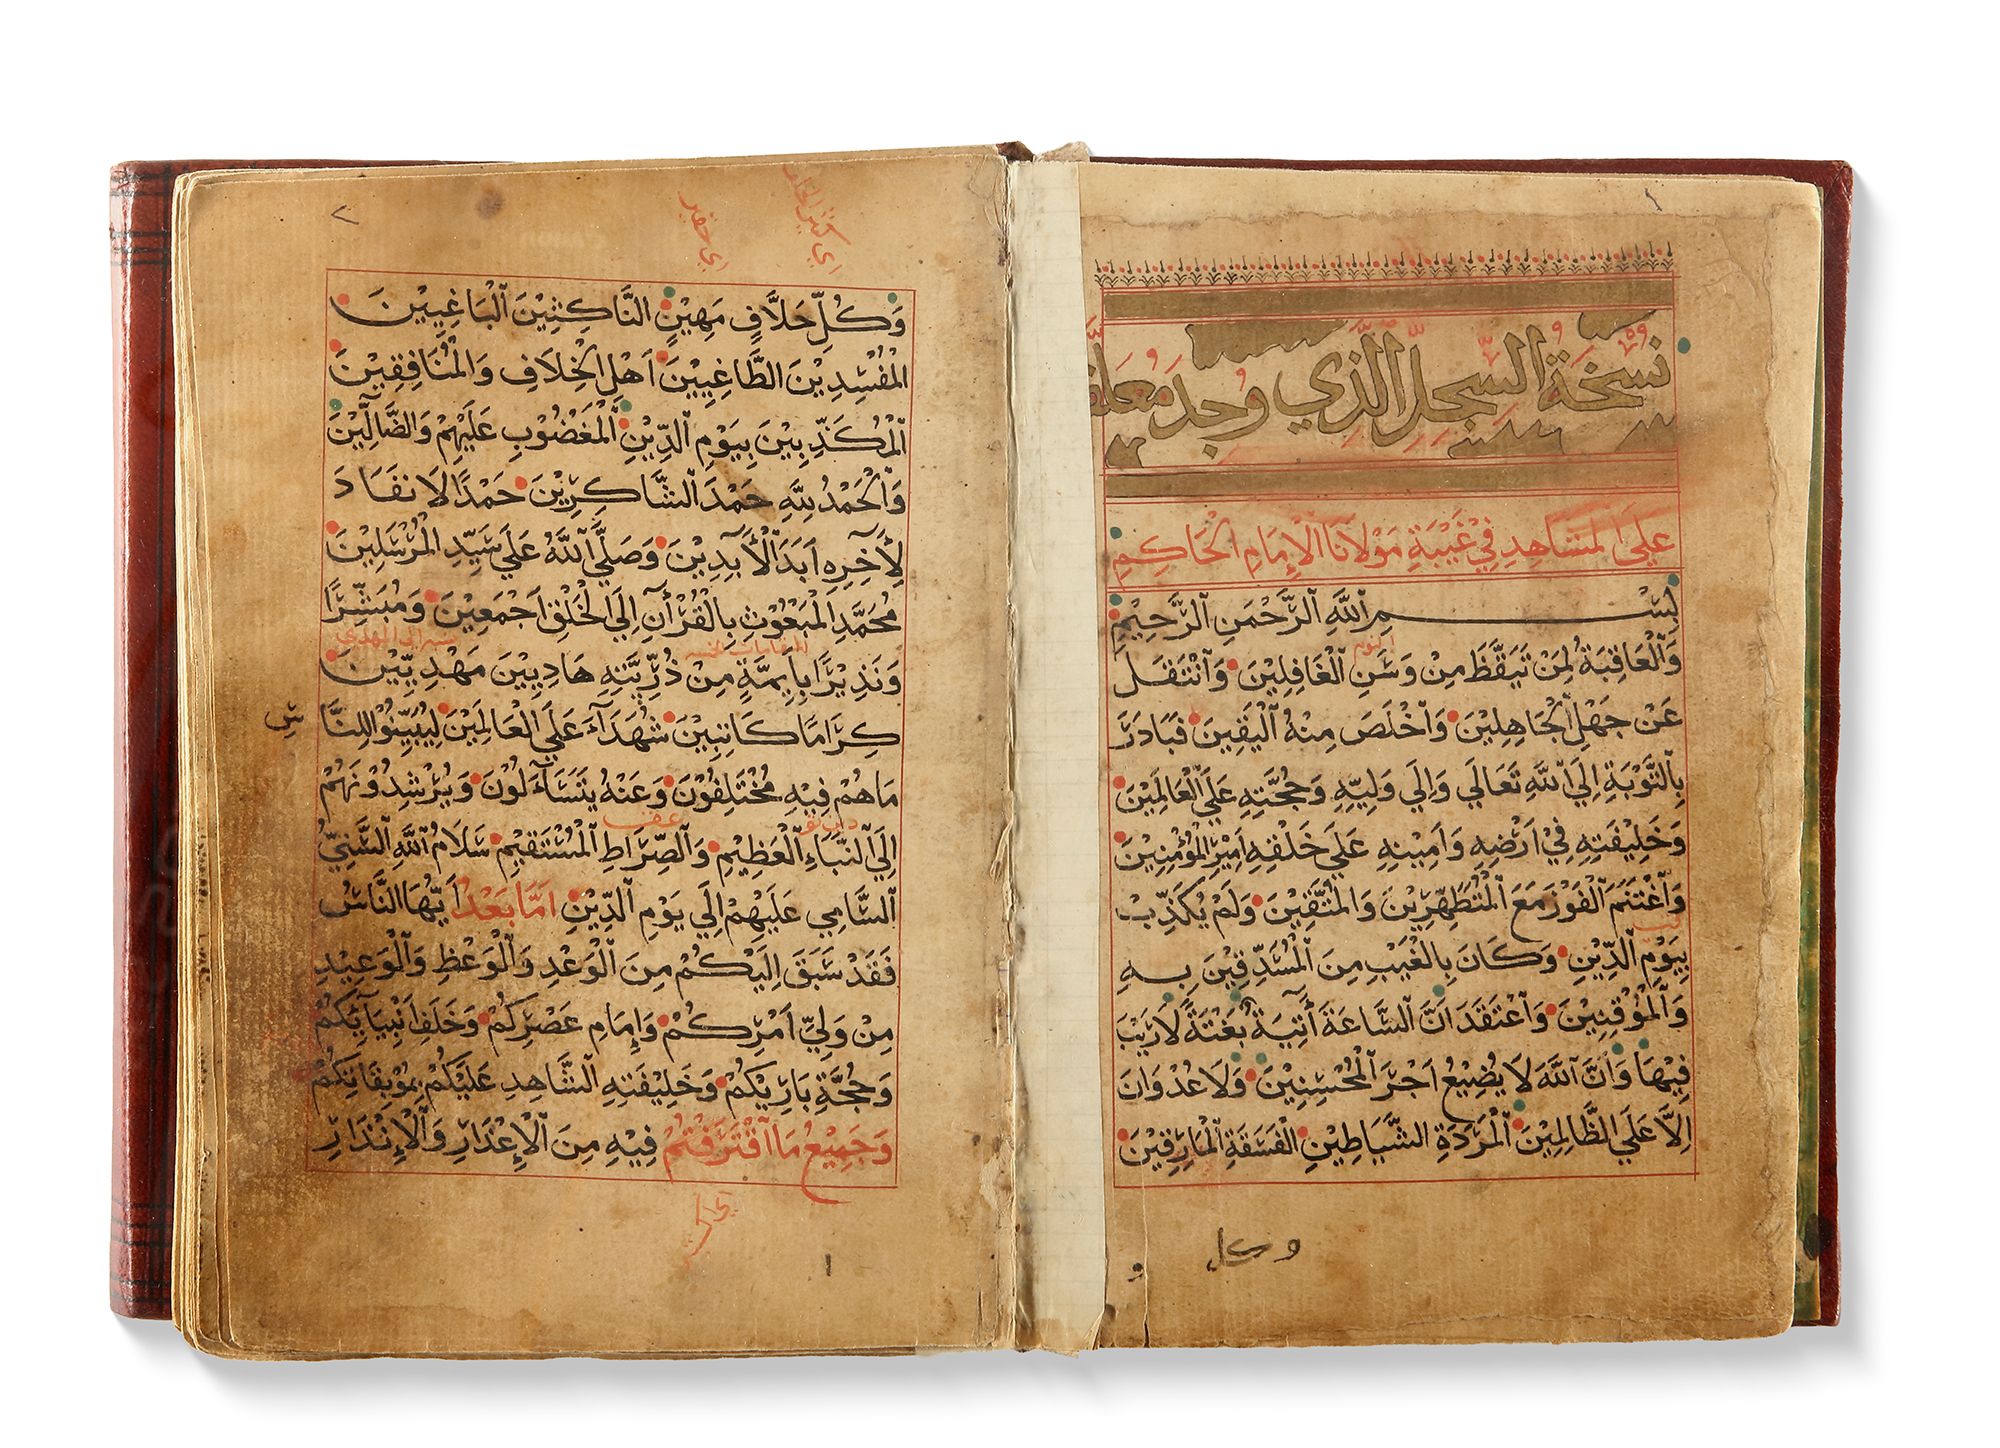 ١
نسخة السجل الذي وجد معلق
على المشاهد في غيبة مولانا الإمام الحاكم
بِسْمِ اللَّهِ الرَّحْمَنِ الرَّحِيمِ
وَالْعَاقِبَةُ لِمَنْ تَيَقَّظَ مِنْ وَسَنِ الْغَافِلِينَ وَانْتَقَلَ
عَنْ جَهْلِ الْجَاهِلِينَ وَاخْلَصَ مِنْهُ الْيَقِينَ فَبَادَرَ
بِالتَّوْبَةِ إِلَى اللَّهِ تَعَالَى وَإِلَى وَلِيِّهِ وَحُجَّتِهِ عَلَى الْعَالَمِينَ
وَخَلِيفَتِهِ فِي اَرْضِهِ وَاَمِينِهِ عَلَى خَلْقِهِ اَمِيرِ الْمُؤْمِنِينَ
وَاغْتَنَمَ الْفَوْزَ مَعَ الْمُتَطَهِّرِينَ وَالْمُتَّقِينَ وَلَمْ يُكَذِّبْ
بِيَوْمِ الدِّينِ وَكَانَ بِالْغَيْبِ مِنَ الْمُسَدِّقِينَ بِهِ
وَالْمُوْقِنِينَ وَاعْتَقَدَ اَنَّ السَّاعَةَ أَتِيَةٌ بَغْتَةً لَا رَيْبَ
فِيْهَا وَاَنَّ اللَّهَ لَا يُضِيْعُ اَجْرَ الْمُحْسِنِيْنَ وَلَا عُدْوَانَ
اِلَّا عَلَى الظَّالِمِيْنَ الْمَرَدَةِ الشَّيَاطِيْنِ الْفَسَقَةِ الْمَارِقِيْنَ
وكل
٢
وَكُلِّ حَلَّافٍ مَهِيْنٍ النَّاكِثِيْنَ الْبَاغِيِيْنَ
الْمُفْسِدِيْنَ الطَّاغِيِيْنَ اَهْلِ الْخِلَافِ وَالْمُنَافِقِيْنَ
الْمُكَذِّبِيْنَ بِيَوْمِ الدِّيْنِ الْمَغْضُوْبِ عَلَيْهِمْ وَالضَّالِّيْنَ
وَالْحَمْدُ لِلَّهِ حَمْدَ الشَّاكِرِيْنَ حَمْدًا لَا نَفَادَ
لِأَخِرِهِ اَبَدَ الْأَبَدِيْنَ وَصَلَّى اللَّهُ عَلَى سَيِّدِ الْمُرْسَلِيْنَ
مُحَمَّدٍ الْمَبْعُوْثِ بِالْقُرْأَنِ إِلَى الْخَلْقِ اَجْمَعِيْنَ وَمُبَشِّرًا
وَنَذِيْرًا بِاَيِمَّةٍ مِنْ ذُرِّيَّتِهِ هَادِيِيْنَ مَهْدِيِّيْنَ
كِرَامًا كَاتِبِيْنَ شُهَدَآءَ عَلَى الْعَالَمِيْنَ لِيُبَيِّنُوْا لِلنَّا
س
مَا هُمْ فِيْهِ مُخْتَلِفُوْنَ وَعَنْهُ يَتَسَآءَلُوْنَ وَيُرْشِدُوْنَهُمْ
إِلَى النَّبَاءِ الْعَظِيْمِ وَالصِّرَاطِ الْمُسْتَقِيْمِ سَلَامُ اللَّهِ السَّنِيُّ
السَّامِي عَلَيْهِمْ إِلَى يَوْمِ الدِّيْنِ اَمَّا بَعْدُ اَيُّهَا النَّاسُ
فَقَدْ سَبَقَ اِلَيْكُمْ مِنَ الْوَعْدِ وَالْوَعْظِ وَالْوَعِيْدِ
مِنْ وَلِيِّ اَمْرِكُمْ وَإِمَامِ عَصْرِكُمْ وَخَلَفِ اَنْبِيَآئِكُمْ
وَحُجَّةِ بَارِيْكُمْ وَخَلِيْفَتِهِ الشَّاهِدِ عَلَيْكُمْ بِمُوْبِقَاتِكُمْ
وَجَمِيْعِ مَا اقْتَرَفْتُمْ فِيْهِ مِنَ الْإِعْذَارِ وَالْإِنْذَارِ
١